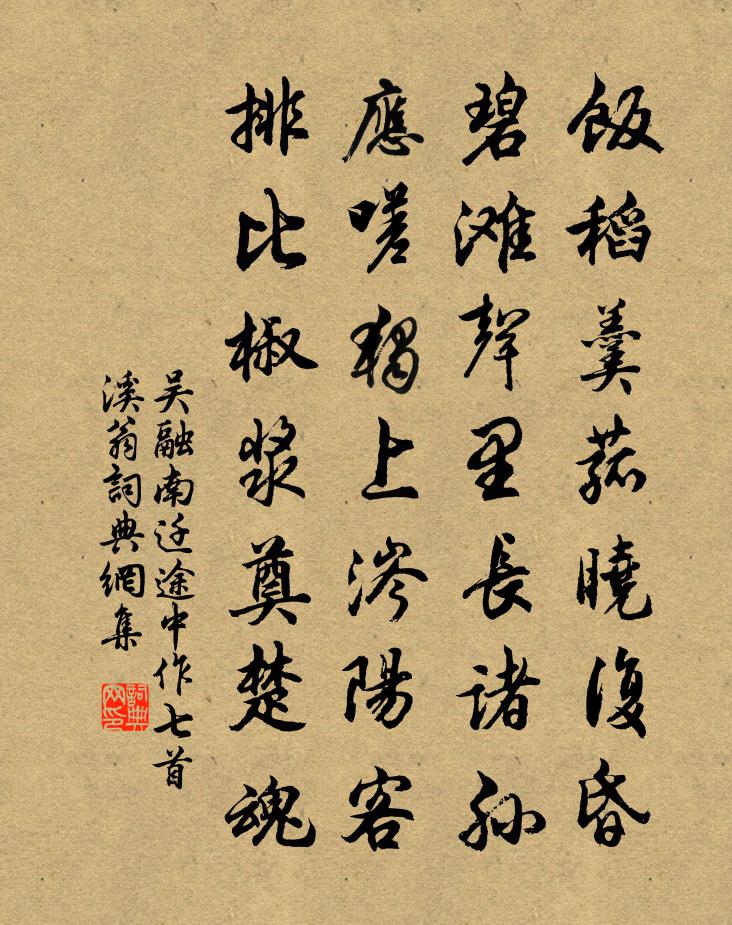 飯稻羹菰曉復昏
碧滩聲里長諸孙
應嗟獨上涔陽客
排比椒漿奠楚魂
吴融南迁途中作七首
溪翁詞典網集
詞典网印